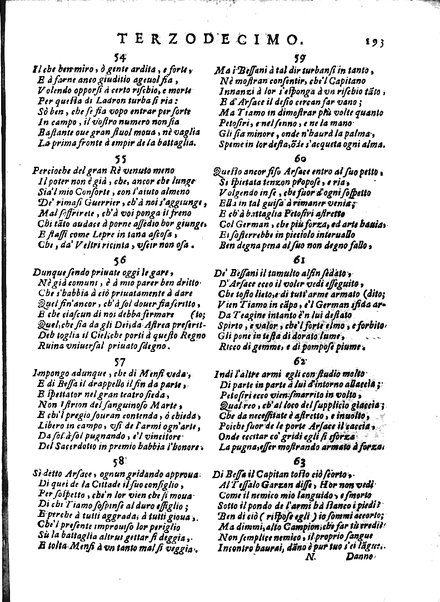 TERZODECIMO. 193
54
Il che ben miro, ò gente ardita, e forte,
E à farne anco giuditio ageuol fia,
Volendo opporsi à certo rischio, e morte
Per questa di Ladron turba sì ria:
Sò ben, che se fia vopo entrar per sorte
In campo, il vostro numero non fia
Bastante oue gran stuol moua, nè vaglia
La prima fronte à empir de la battaglia.
55
Percioche del gran Rè venuto meno
Il poter non è già, che, ancor che lunge
Sia'l mio Consorte, con l'aiuto almeno
De' rimasi Guerrier, ch'à noi s'aggiunge,
Mal soffrirete, ch'à voi ponga il freno
Chi tãto audace à porne assedio hor giunge,
E stassi come Lepre in tana ascosa,
Che, da' Veltri vicinta, vscir non osa.
56
Dunque sendo priuate oggi le gare,
Nè già comuni, è à mio parer ben dritto
Che s'habbia à ciò priuatamente à dare
Quel fin'ancor, ch'è dal douer sia scritto,
E che ciascun di noi debba fermare (to;
Quel, che sia da gli Dei, da Astrea prescrit-
Deb toglia il Ciel, che porti à questo Regno
Ruina vniuersal priuato sdegno.
57
Impongo adunque, che di Menfi veda,
E di Bessa il drappello il fin da parte,
E spettator nel gran teatro sieda,
Non istrion del sanguinoso Marte,
E ch'i pregio scorran contenda, e chieda,
Libero in campo, vsi de l'armi ogn'arte,
Da sol à sol pugnando, e'l vincitore
Del Sacerdotio in premio habbia l'honore.
58
Sì detto Arsace, ogn un gridando approua
Di quei de la Cittade il suo consiglio,
Per sospetto, ch'in lor vien che si moua
Di chi Tiamo sospinse al duro essiglio;
E perche à tutti aggrada, à tutti gioua,
Che'l presente improuiso lor periglio
Sù la battaglia altrui gettar si deggia,
E tolta Menfi à vn tanto mal si veggia.
59
Ma i Bessani à tal dir turbansi in tanto,
Nè mostran consentir, che'l Capitano
Innanzi à lor s'esponga à vn risebio tãto,
E d'Arsace il desio cercan far vano;
Ma Tiamo in dimostrar più volte quanto
Petosiri, e nel senno, e ne la mano
Gli sia minore, onde n'haurà la palma,
Speme in lor desta, & se s'acqueta ogni alma.
60
Questo ancor fisso Arsace entro al suo petto,
Sì spietata tenzon propose, e ria,
Volgendo in sè, che fuor d'ogni sospetto
Ella in tal guisa à rimaner venia;
E ch'à battaglia Petosiri astretto
Col German, che più forza, ed arte hauia;
E i sofferrebbe in picciolo interuallo
Ben degna pena al suo non degno fallo,
61
De' Bessani il tumulto alfin sedato,
D'Arsace ecco il voler vedi esseguito,
Che tosto lieto, e di tutt'arme armato (dito;
Vien Tiamo in cãpo, e'l German sfida ar-
Da Teagine intanto è'n lui destato
Spirto, e valor, che'l forte elmo, e forbito
Gli pone in testa di dorato lume,
Ricco di gemme, e di pompose piume.
62
Indi l'altre armi egli con studio molto
Di parte in parte à lui d'intorno allaccia:
Petosiri ecco vien smarrito in volto,
Qual reo, ch'al loco del supplicio giaccia;
Che da necessitate è astretto, e inuolto,
Poiche fuor de le porte Arsace il caccia,
Onde eccitar co' gridi egli si sforza
La pugna, esser mostrando armato à forza.
63
Di Bessa il Capitan tosto ciò scorto,
Al Tessalo Garzon disse, Hor non vedi
Come il nemico mio languido, e smorto
Sotto il pondo de l'armi hà stanco i piedi?
Ben di ciò (rispose egli) io sommi accorto;
Ma dimmi, alto Campion, che far tù credi?
Non semplice nemico, il proprio sangue
Incontro haurai, dãno è pur tuo s'ei langue.
N. Danno